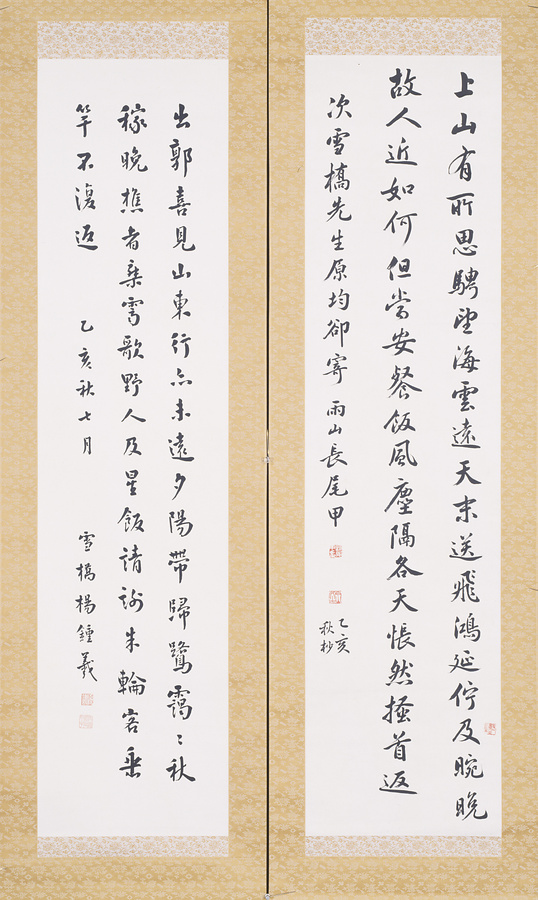 上山有所思騁望海雲遠天末送飛鴻延佇及晼晩
故人近如何但当安餐飯風塵隔各天悵然搔首返
次雪橋先生原均卻寄 雨山長尾甲
乙亥
秋杪
出郭喜見山東行亦未遠夕陽帯歸鷺靄〻秋
稼晩樵者乘霽歌野人及星飯請謝朱輪客垂
竿不復返 乙亥秋七月 雪橋楊鍾羲